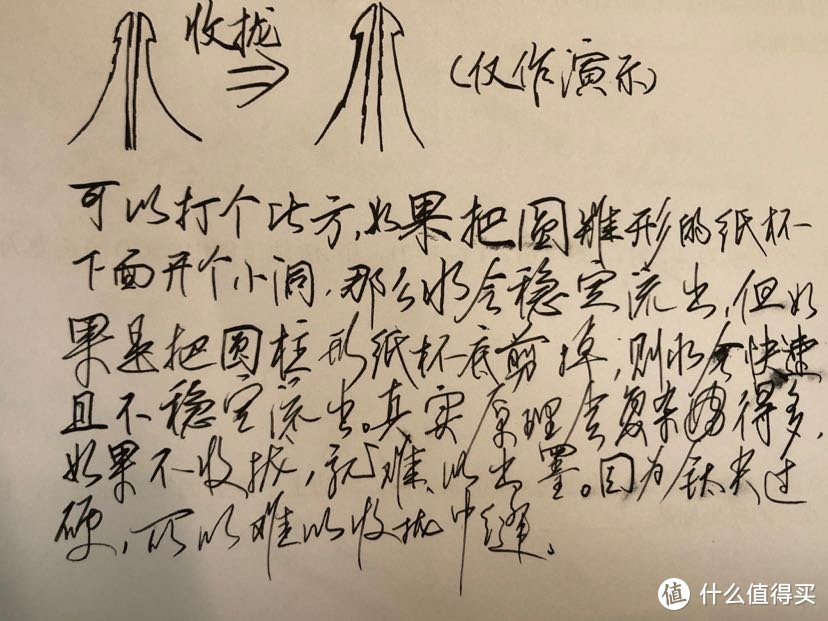 收拢
(仅作演示)
可以打个比方,如果把圆锥形的纸杯
下面开个小洞,那么水会稳定流出,但如
果是把圆柱形纸杯底剪掉,则水会快速
且不稳定流出。真实原理会复杂得多,
如果不收拢,就难以出墨。因为钛尖过
硬,所以难以收拢中缝。
值 什么值得买